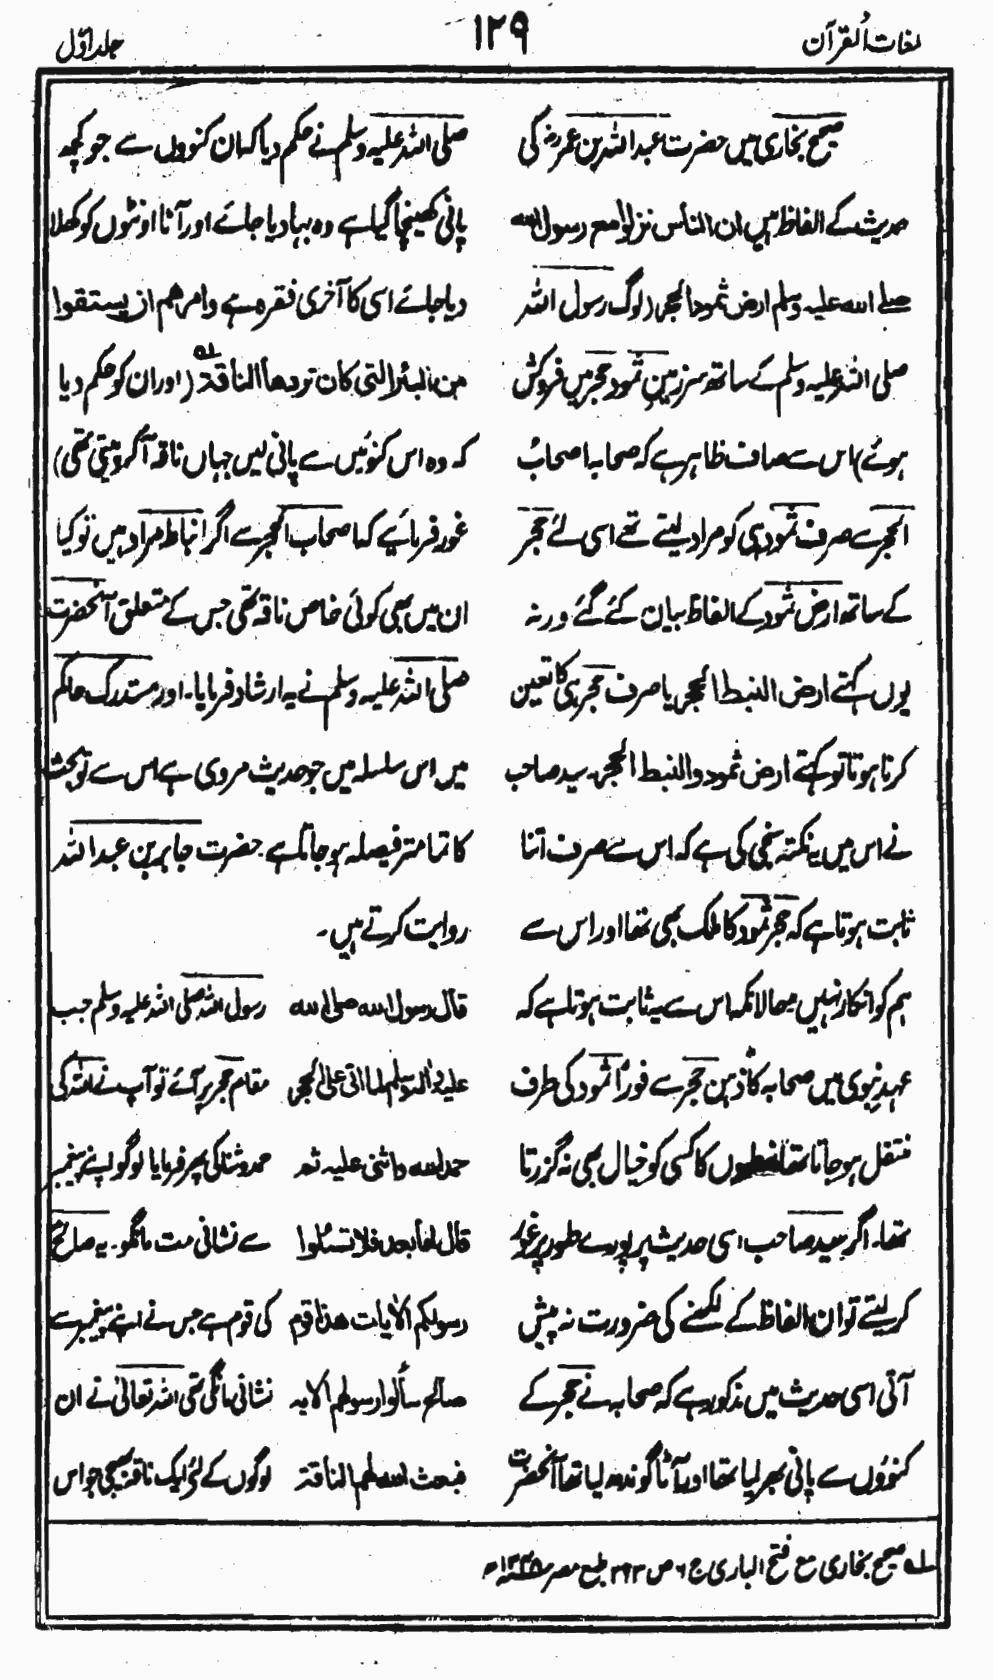 لغات القرآن
۱۲۹
جلد اوّل
صحیح بخاری میں حضرت عبد اللہ بن عمرؓ کی
حدیث کے الفاظ ہیں ان الناس نزلوا مع رسول الله
صلے الله علیہ وسلم ارض ثمود الحجر (لوگ رسول اللہ
صلی اللہ علیہ وسلم کے ساتھ سرزمین ثمود حجر میں فروکش
ہوئے) اس سے صاف ظاہر ہے کہ صحابہ اصحابُ
الحجر سے صرف ثمود ہی کو مراد لیتے تھے اسی لئے حجر
کے ساتھ ارض ثمود کے الفاظ بیان کئے گئے ورنہ
یوں کہتے ارض النبط الحجر یا صرف حجر ہی کا تعین
کرنا ہوتا تو کہتے ارض ثمود والنبط الحجر۔ سید صاحب
نے اس میں یہ نکتہ سنجی کی ہے کہ اس سے صرف اتنا
ثابت ہوتا ہے کہ حجر ثمود کا ملک بھی تھا اور اس سے
ہم کو انکار نہیں حالانکہ اس سے یہ ثابت ہوتا ہے کہ
عہد نبوی میں صحابہ کا ذہن حجر سے فوراً ثمود کی طرف
منتقل ہوجاتا تھا نبطیوں کا کسی کو خیال بھی نہ گزرتا
تھا۔ اگر سید صاحب اسی حدیث پر پورے طور پر غور
کرلیتے تو ان الفاظ کے لکھنے کی ضرورت نہ پیش
آتی اسی حدیث میں مذکور ہے کہ صحابہ نے حجر کے
کنوؤں سے پانی بھر لیا تھا اور آٹا گوندھ لیا تھا آنحضرت
صلی اللہ علیہ وسلم نے حکم دیا کہ ان کنووں سے جو کچھ
پانی کھینچا گیا ہے وہ بہا دیا جائے اور آٹا اونٹوں کو کھلا
دیا جائے اسی کا آخری فقرہ ہے وامرهم ان یستقوا
من البئر التی کان تردها الناقة ۱ (اور ان کو حکم دیا
کہ وہ اس کنوئیں سے پانی لیں جہاں ناقہ آکر پیتی تھی)
غور فرمائیے کہ اصحاب الحجر سے اگر انباط مراد ہیں تو کیا
ان میں بھی کوئی خاص ناقہ تھی جس کے متعلق آنحضرت
صلی اللہ علیہ وسلم نے یہ ارشاد فرمایا۔ اور مستدرک حاکم
میں اس سلسلہ میں جو حدیث مروی ہے اس سے تو بحث
کا تمامتر فیصلہ ہوجاتا ہے حضرت جابر بن عبد اللہ
روایت کرتے ہیں۔
قال رسول الله صلی الله رسول اللہ صلی اللہ علیہ وسلم جب
علیہ واله وسلم لما اتی علی الحجر مقام حجر پر آئے تو آپ نے اللہ کی
حمد الله واثنی علیہ ثم حمد و ثنا کی پھر فرمایا لوگو اپنے پیغمبر
قال اما بعد فلا تسئلوا سے نشانی مت مانگو۔ یہ صالح
رسولکم الآیات هذا قوم کی قوم ہے جس نے اپنے پیغمبر سے
صالح سألوا رسولهم الآیہ نشانی مانگی تھی اللہ تعالیٰ نے ان
فبعث الله لهم الناقة لوگوں کے لئے ایک ناقہ بھیجی جو اس
۱ صحیح بخاری مع فتح الباری ج ۶ ص ۲۹۳ طبع مصر